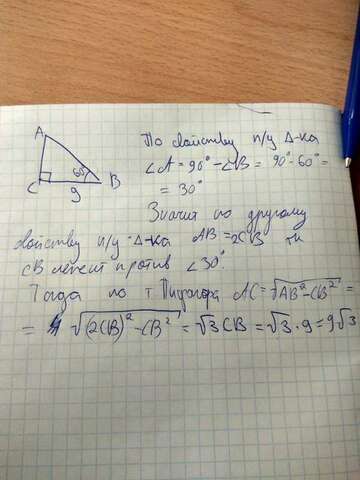 A
60°
C
9
B
По свойству п/у Δ-ка
∠A = 90° - ∠B = 90° - 60° =
= 30°
Значит по другому
свойству п/у Δ-ка AB = 2CB тк
CB лежит против ∠30°.
Тогда по т. Пифагора AC = √(AB² - CB²) =
= √((2CB)² - CB²) = √3 CB = √3 · 9 = 9√3